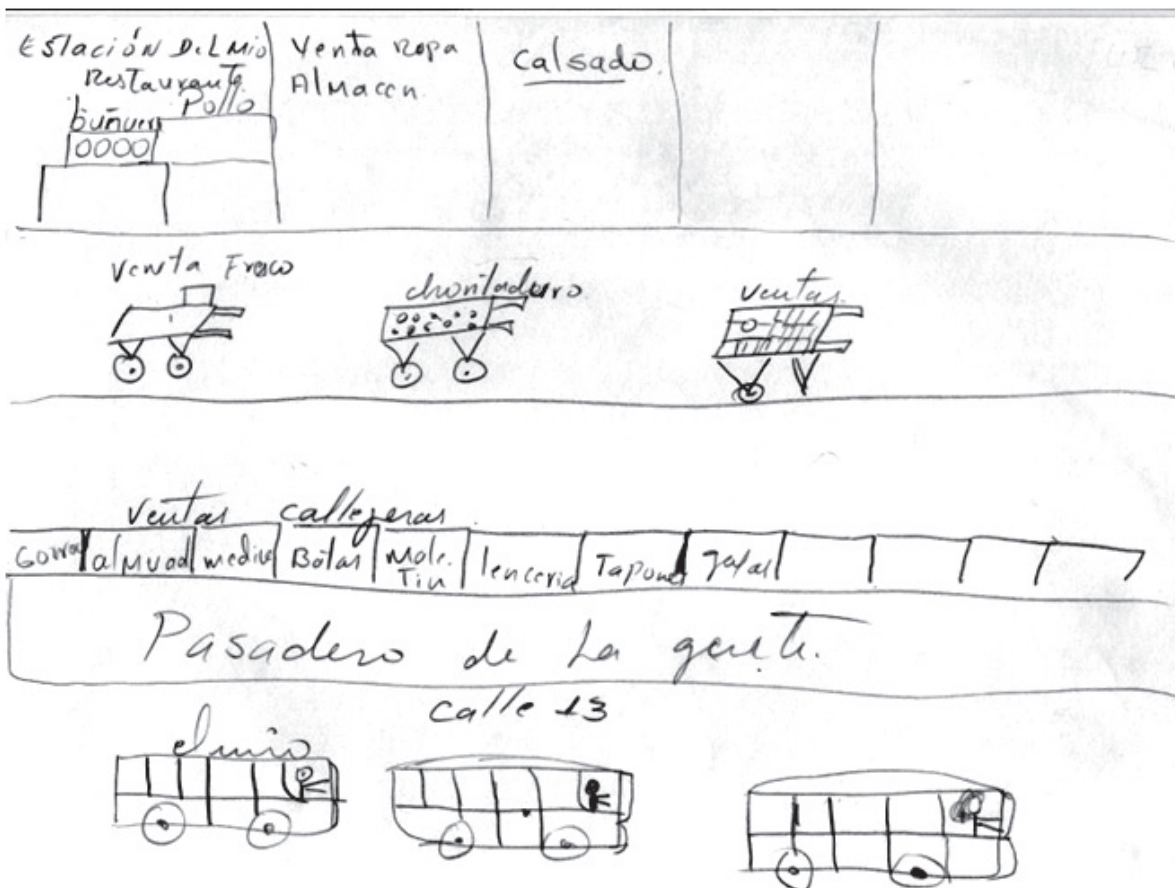 EStación Del Mio
Restaurante
Pollo
buñuero
Venta Ropa
Almacen
Calsado
Venta Fresco
chontaduro
ventas
Ventas callejeras
Gorra almuad medias Botas Male. Tin lenceria Tapones gafas
Pasadero de La gente.
calle 13
el mio